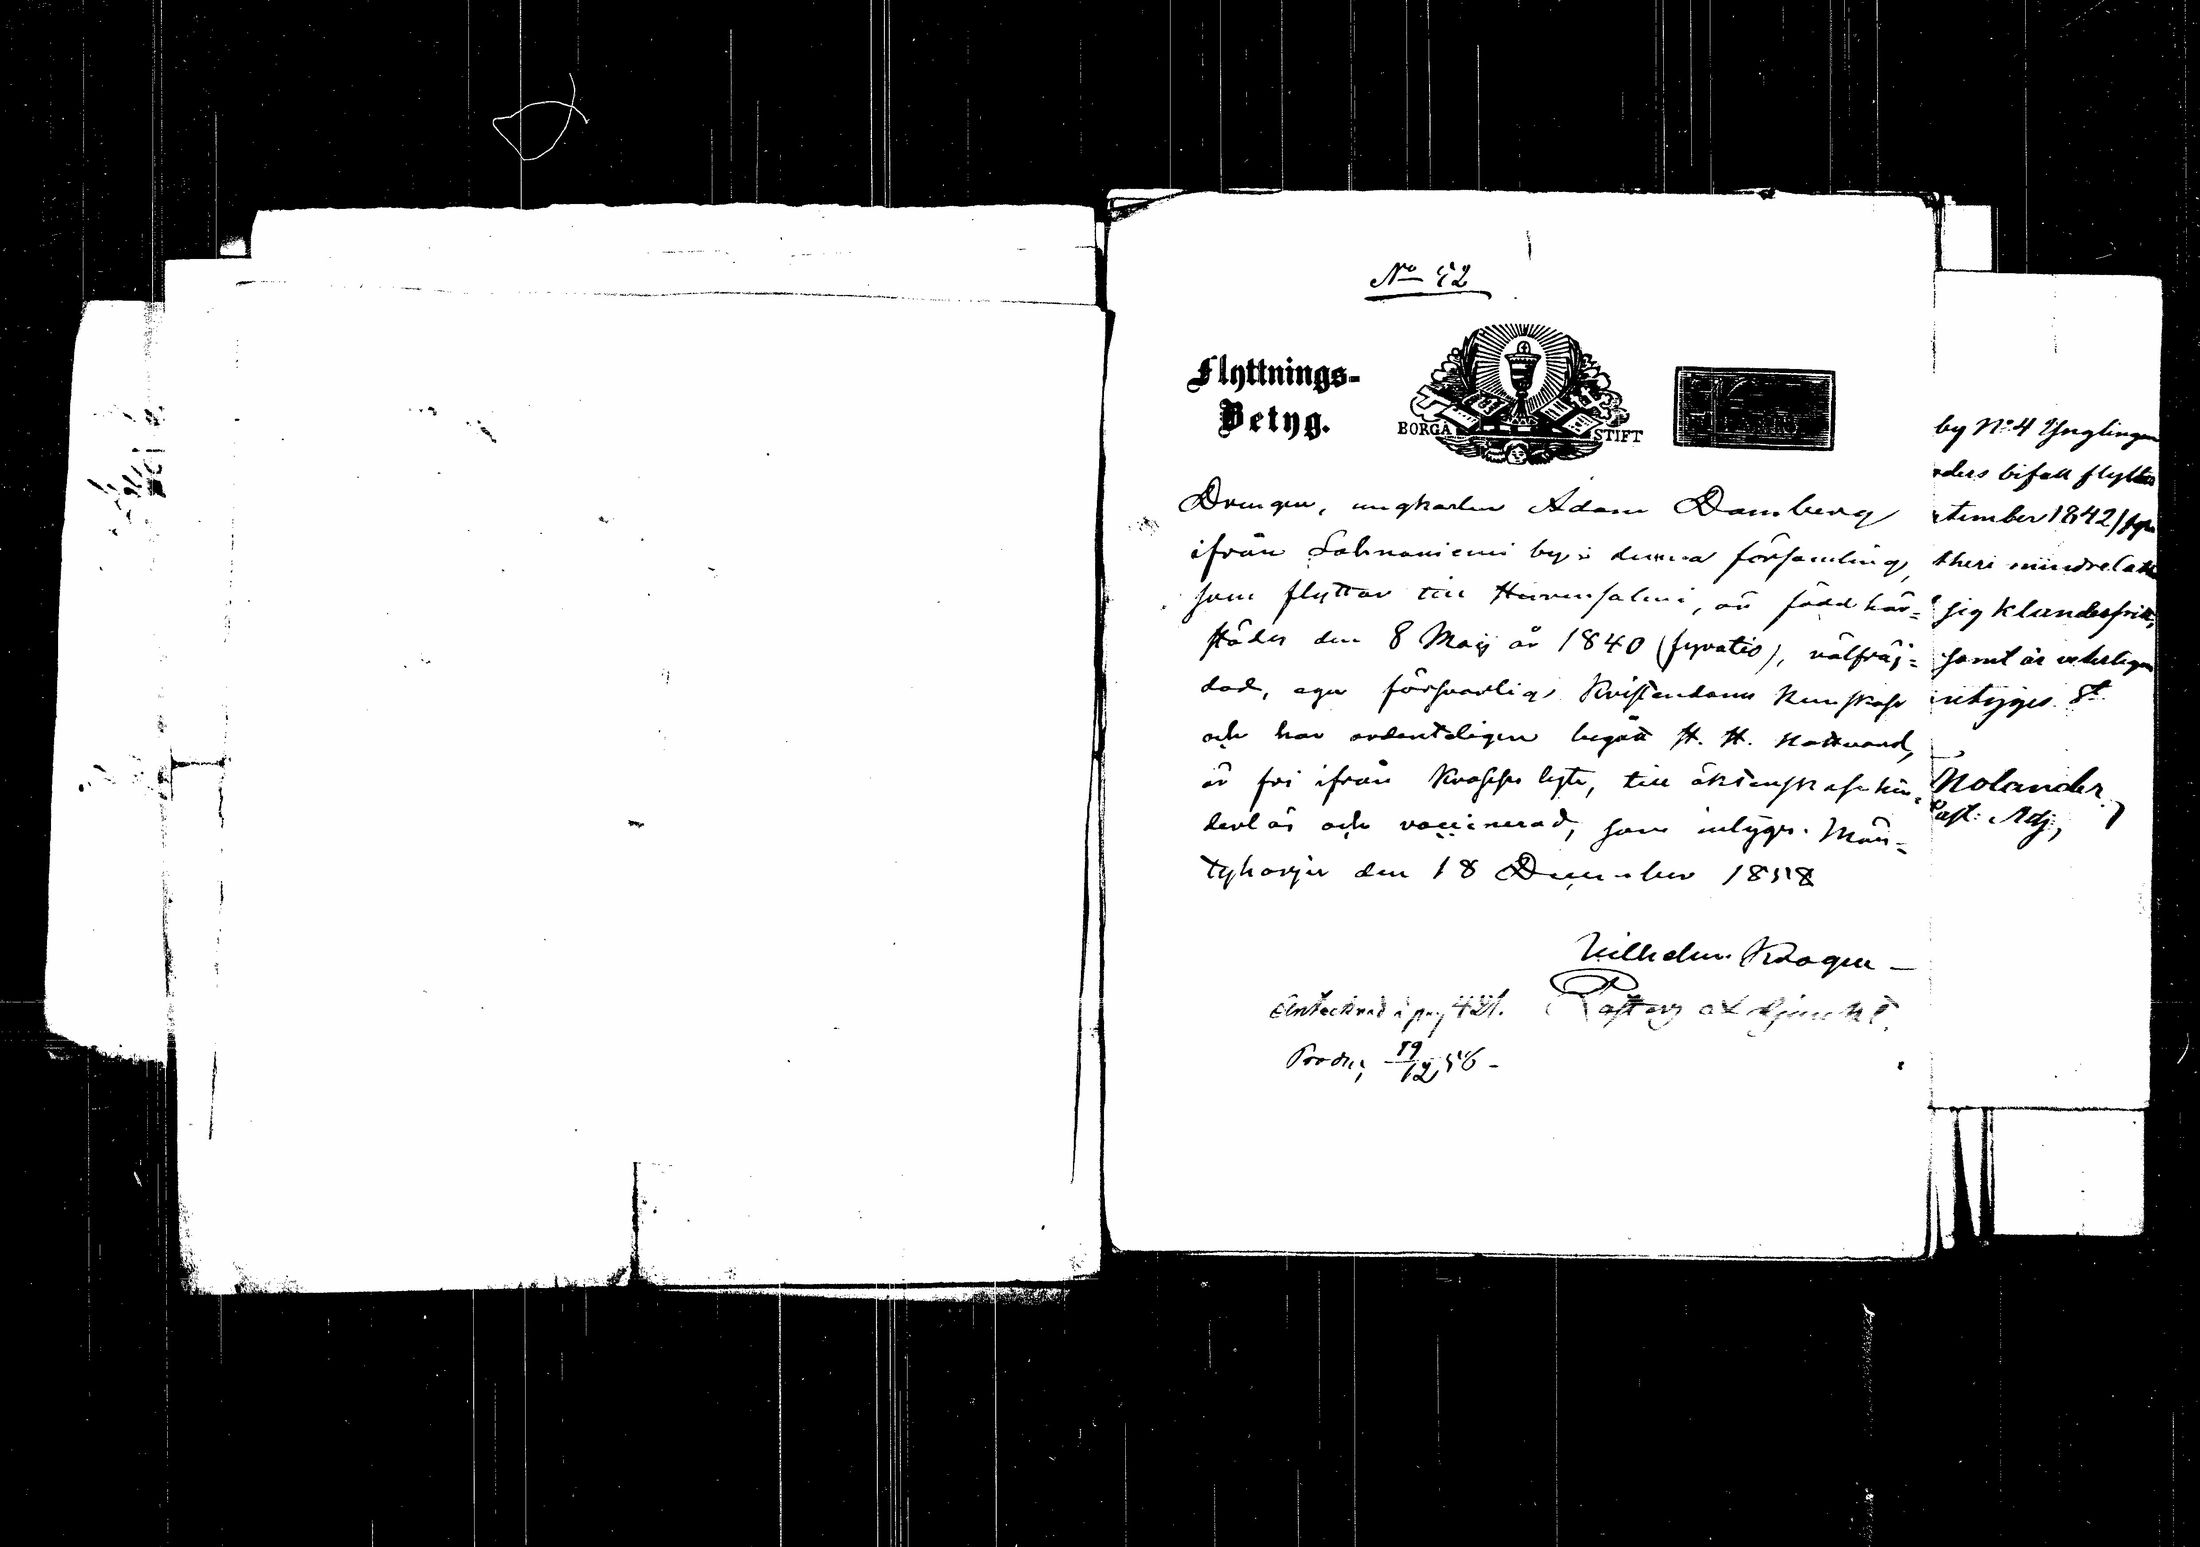 No 52
Flyttnings-
Betyg.
BORGÅ STIFT
Drengen, ungkarlen Adam Damberg
ifrån Lahnaniemi by i denna församling,
som flyttar till Hirvensalmi, är född här-
städes den 8 Maij år 1840 (fyratio), välfräj-
dad, eger försvarlig Kristendoms Kunskap
och har ordentligen begått H. H. Nattvard,
är fri ifrån Kropps lyte, till äktenskap hin-
derlös och vaccinerad, som intygas. Män-
tyharju den 18 December 1858
Wilhelm Krogen
Pastors Adjunkt.
Antecknad i pag 421.
Prod.; 19/12 58 -
by No 4 Ynglingen
rders bifall flyttar
tember 1842/fyra
theri mindre
sig klanderfritt,
samt är veterligen
intygas. St.
Nolander,
Past: Adj,